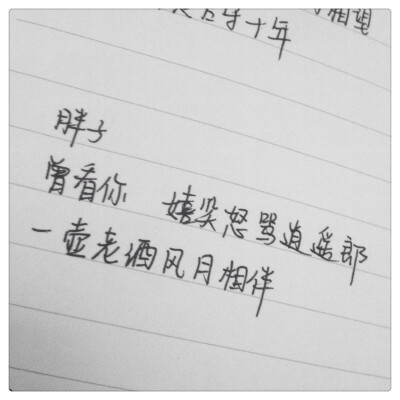 十年 相望
胖子
曾看你 嬉笑怒骂逍遥郎
一壶老酒风月相伴